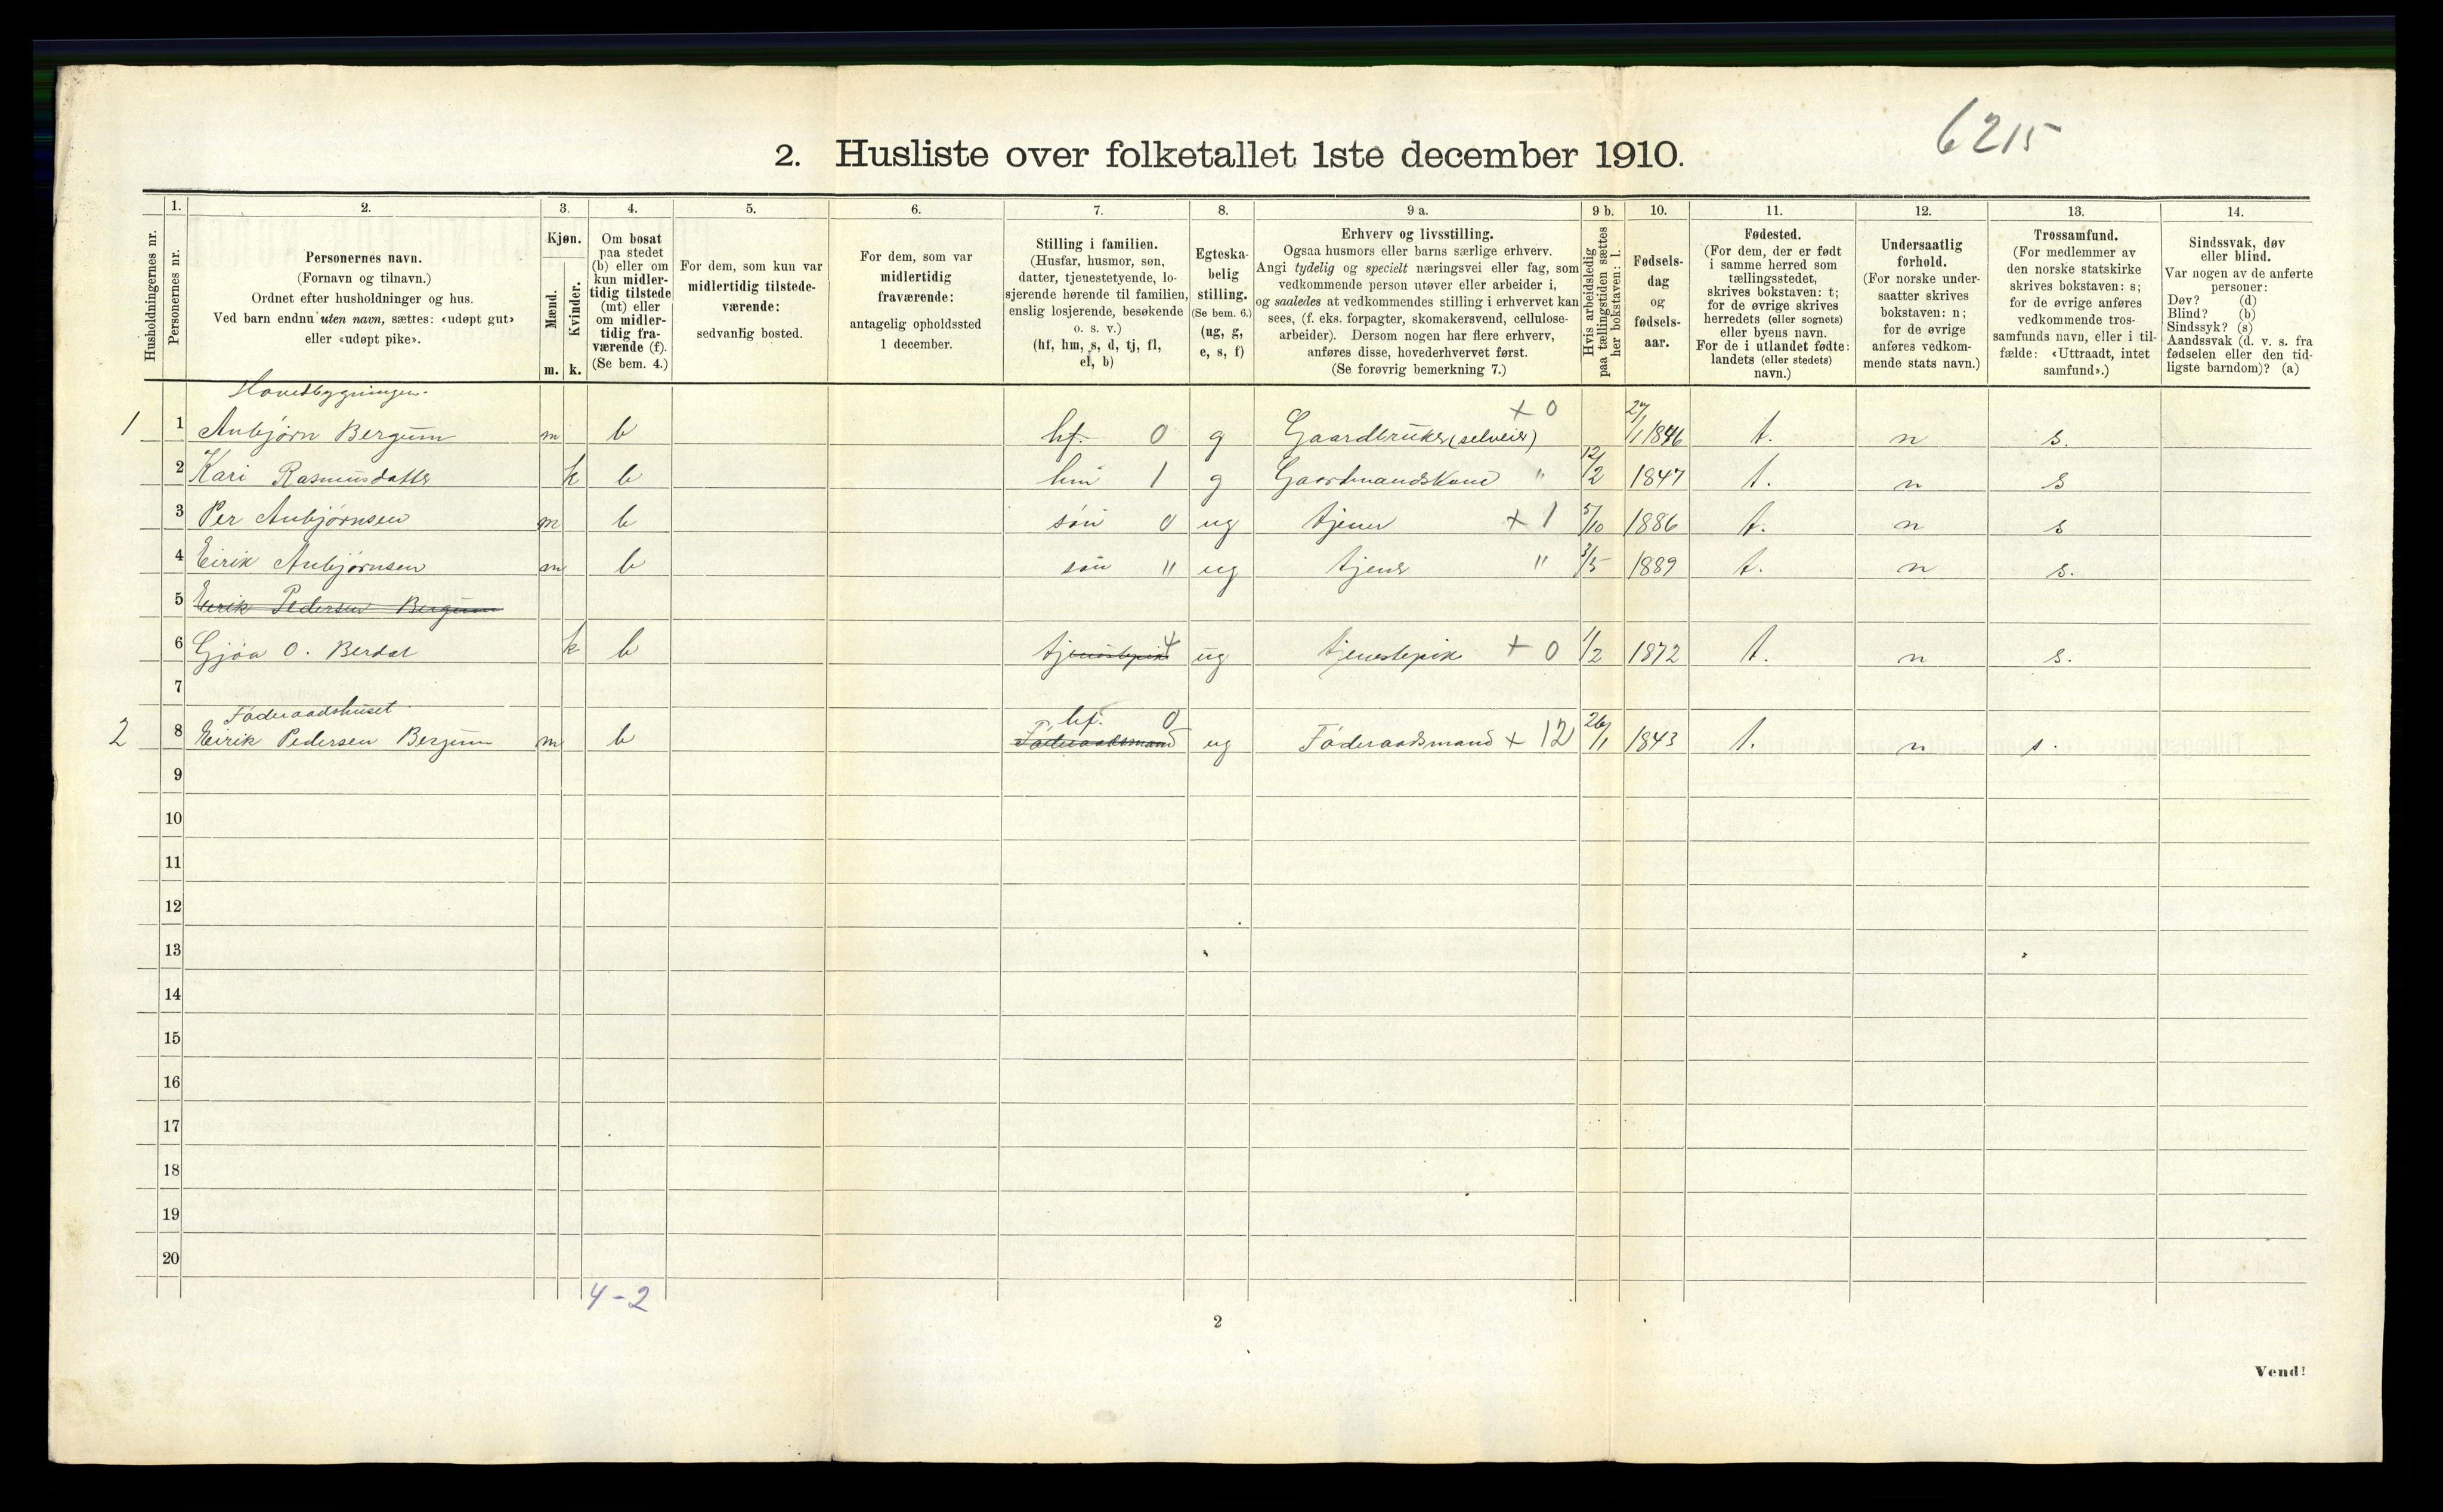 6215
2. Husliste over folketallet 1ste december 1910.
1. 2. 3. 4. 5. 6. 7. 8. 9 a. 9 b. 10. 11. 12. 13. 14.
Husholdningernes nr.
Personernes nr.
Personernes navn.
(Fornavn og tilnavn.)
Ordnet efter husholdninger og hus.
Ved barn endnu uten navn, sættes: «udøpt gut»
eller «udøpt pike».
Kjøn.
Mænd.
Kvinder.
m. k.
Om bosat
paa stedet
(b) eller om
kun midler-
tidig tilstede
(mt) eller
om midler-
tidig fra-
værende (f).
(Se bem. 4.)
For dem, som kun var
midlertidig tilstede-
værende:
sedvanlig bosted.
For dem, som var
midlertidig
fraværende:
antagelig opholdssted
1 december.
Stilling i familien.
(Husfar, husmor, søn,
datter, tjenestetyende, lo-
sjerende hørende til familien,
enslig losjerende, besøkende
o. s. v.)
(hf, hm, s, d, tj, fl,
el, b)
Egteska-
belig
stilling.
(Se bem. 6.)
(ug, g,
e, s, f)
Erhverv og livsstilling.
Ogsaa husmors eller barns særlige erhverv.
Angi tydelig og specielt næringsvei eller fag, som
vedkommende person utøver eller arbeider i,
og saaledes at vedkommendes stilling i erhvervet kan
sees, (f. eks. forpagter, skomakersvend, cellulose-
arbeider). Dersom nogen har flere erhverv,
anføres disse, hovederhvervet først.
(Se forøvrig bemerkning 7.)
Hvis arbeidsledig
paa tællingstiden sættes
her bokstaven: l.
Fødsels-
dag
og
fødsels-
aar.
Fødested.
(For dem, der er født
i samme herred som
tællingsstedet,
skrives bokstaven: t;
for de øvrige skrives
herredets (eller sognets)
eller byens navn.
For de i utlandet fødte:
landets (eller stedets)
navn.)
Undersaatlig
forhold.
(For norske under-
saatter skrives
bokstaven: n;
for de øvrige
anføres vedkom-
mende stats navn.)
Trossamfund.
(For medlemmer av
den norske statskirke
skrives bokstaven: s;
for de øvrige anføres
vedkommende tros-
samfunds navn, eller i til-
fælde: «Uttraadt, intet
samfund».)
Sindssvak, døv
eller blind.
Var nogen av de anførte
personer:
Døv? (d)
Blind? (b)
Sindssyk? (s)
Aandssvak (d. v. s. fra
fødselen eller den tid-
ligste barndom)? (a)
Hovedbygningen.
1 1 Anbjørn Bergum m b hf. 0 g Gaardbruker (selveier) + 0 27/1 1846 t. n s.
2 Kari Rasmusdatter k b hm 1 g Gaardmandskone " 12/2 1847 t. n s
3 Per Anbjørnsen m b søn 0 ug tjener + 1 5/10 1886 t. n s
4 Eirik Anbjørnsen m b søn " ug tjener " 3/5 1889 t. n s.
5 Eirik Pedersen Bergum
6 Gjøa O. Berdal k b tjenestepike 4 ug tjenestepike + 0 1/2 1872 t. n s.
7
Føderaadshuset
hf. 0
2 8 Eirik Pedersen Bergum m b Føderaadsmand ug Føderaadsmand + 12 26/1 1843 t. n s.
9
10
11
12
13
14
15
16
17
18
19
20
4 - 2
2
Vend!